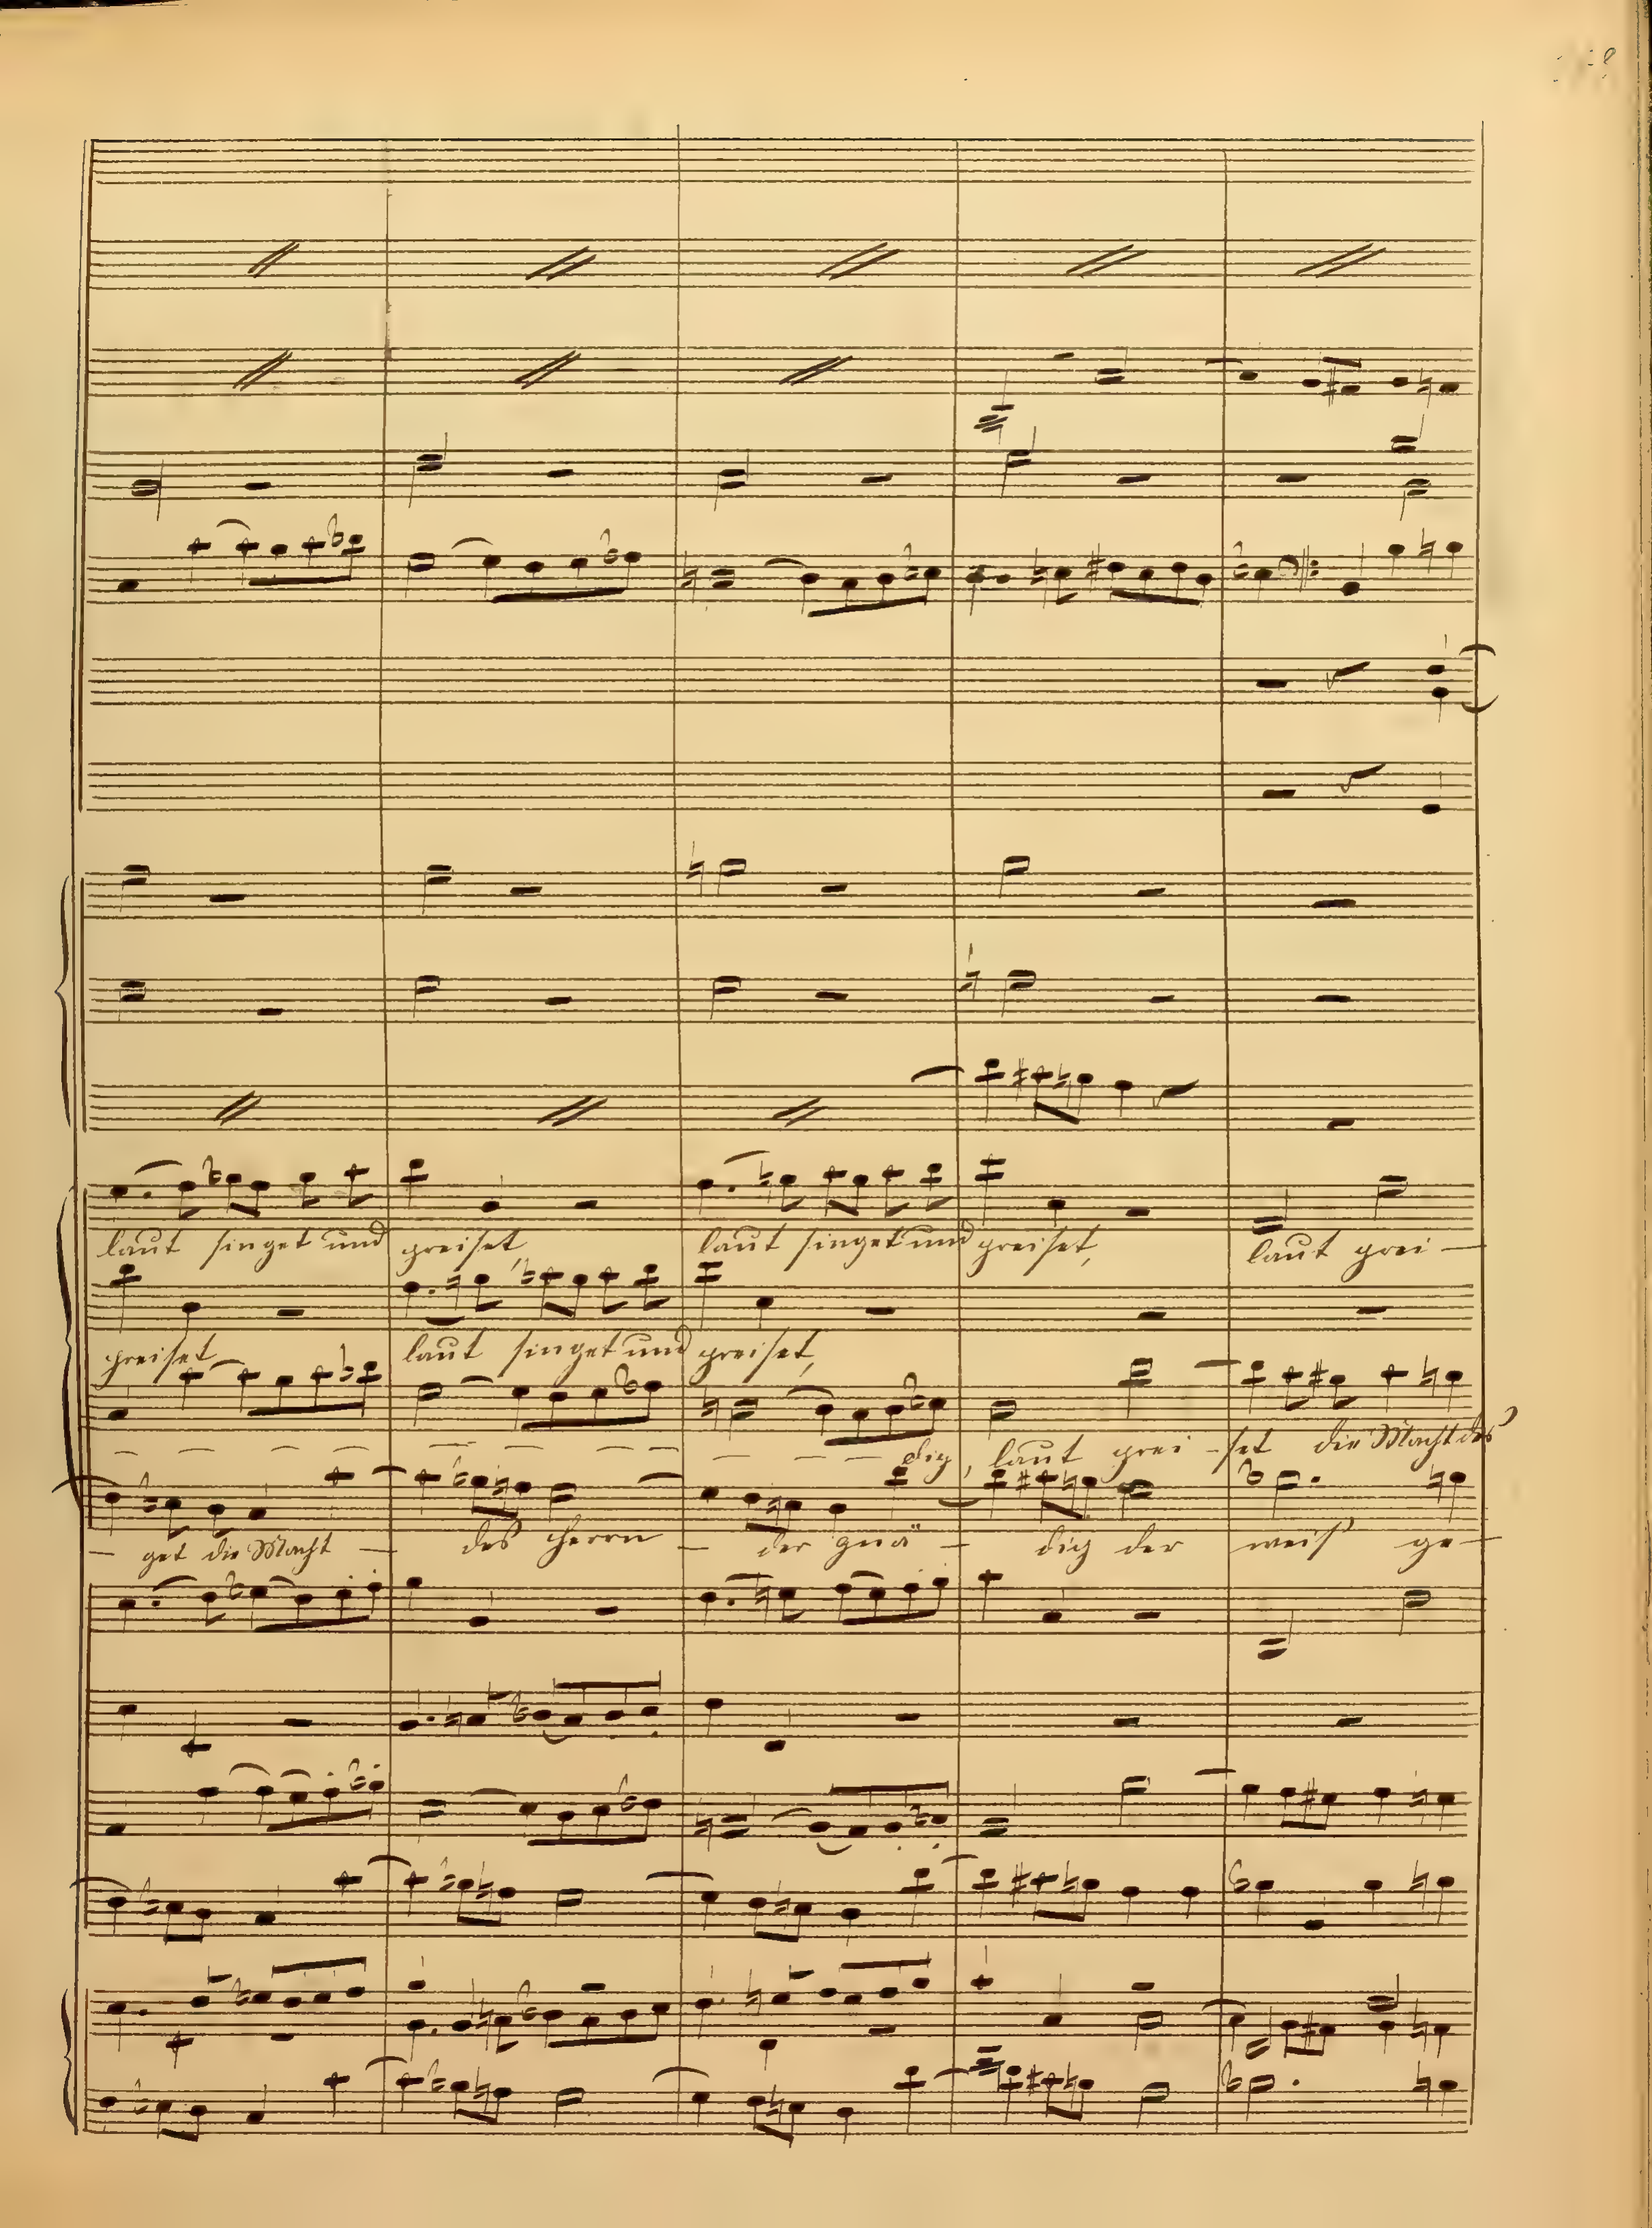 laut singet und preiset, laut singet und preiset, laut prei-
preiset laut singet und preiset,
dig, laut prei-set die Macht des
- get die Macht - des Herrn - der gnä - dig der weis ge-